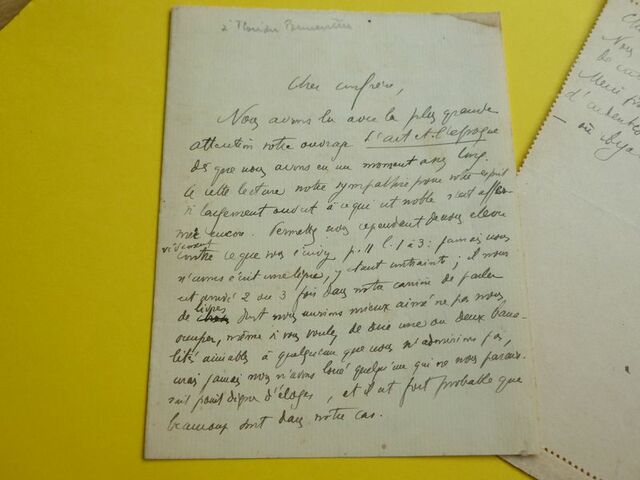 à Florian Parmentier
Cher confrère,
Nous avons lu avec la plus grande
attention votre ouvrage l'art et l'époque
dès que nous avons eu un moment assez long.
A cette lecture notre sympathie pour votre esprit
si largement ouvert à ce qui est noble s'est affer-
mie encore. Permettez nous cependant de nous élever
vivement
contre ce que vous écrivez p. 11 l. 1 à 3 : jamais nous
n'avons écrit une ligne, y étant contraints ; il nous
est arrivé 2 ou 3 fois dans notre carrière de parler
de livres dont nous aurions mieux aimé ne pas nous
occuper, même si vous voulez de dire une ou deux bana-
lités aimables à quelqu'un que nous n'admirions pas,
mais jamais nous n'avons loué quelqu'un qui ne nous parais-
sait point digne d'éloges, et il est fort probable que
beaucoup sont dans notre cas.
Nous
de ca
Merci
d'